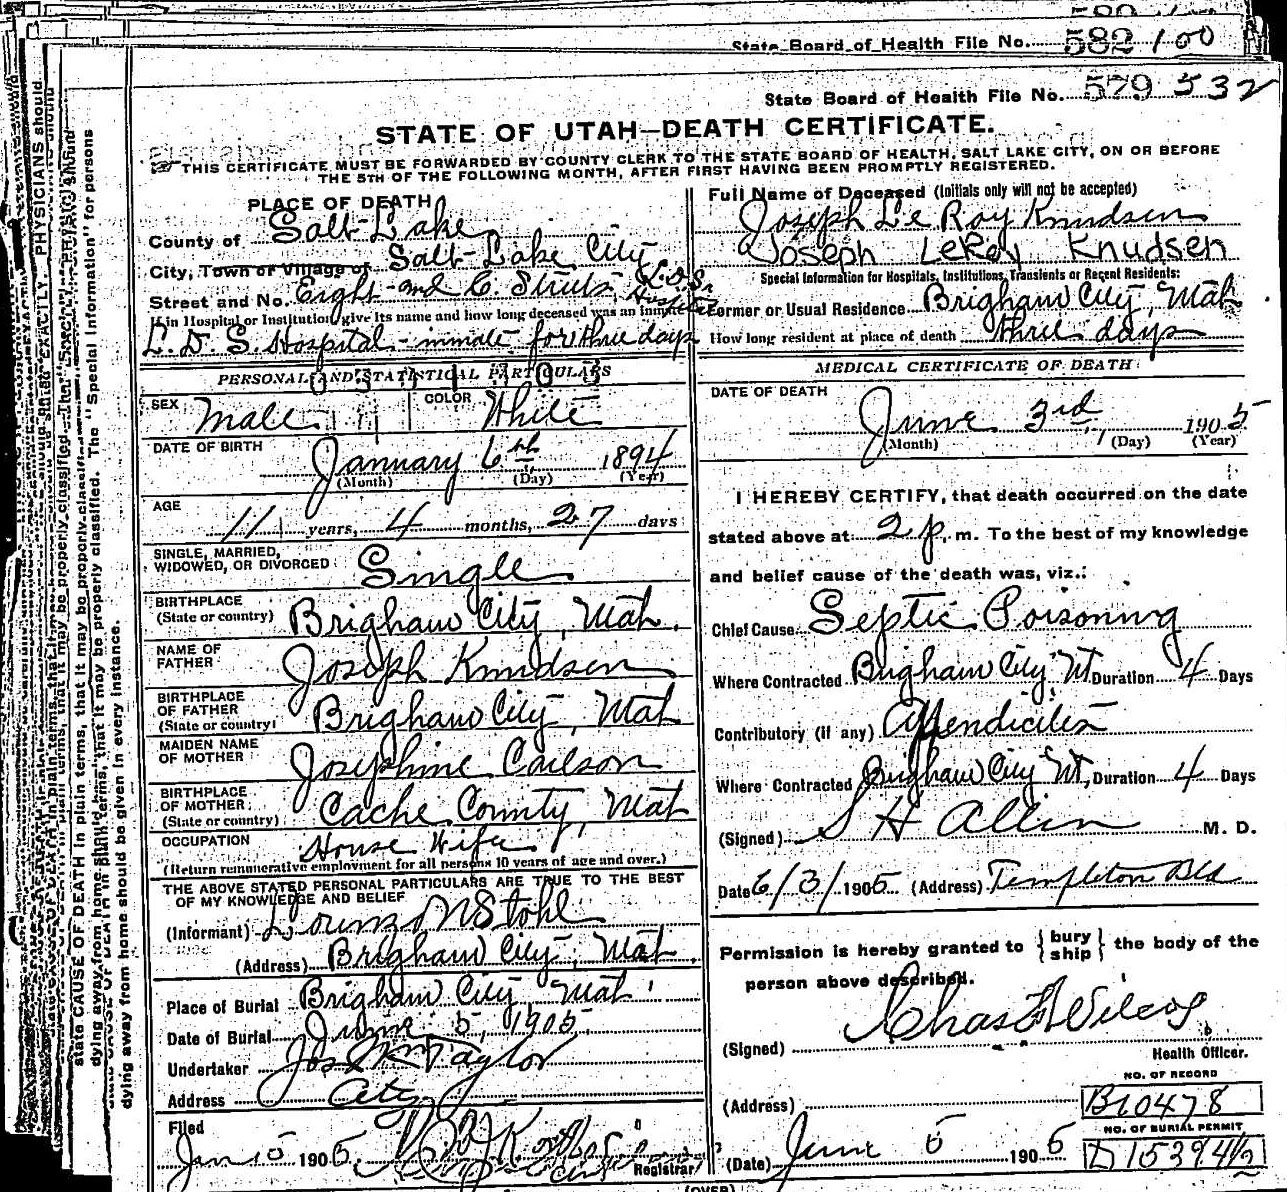 State Board of Health File No. 582 100
State Board of Health File No. 579 532
STATE OF UTAH—DEATH CERTIFICATE.
THIS CERTIFICATE MUST BE FORWARDED BY COUNTY CLERK TO THE STATE BOARD OF HEALTH, SALT LAKE CITY, ON OR BEFORE
THE 5TH OF THE FOLLOWING MONTH, AFTER FIRST HAVING BEEN PROMPTLY REGISTERED.
PLACE OF DEATH
County of Salt Lake
City, Town or Village of Salt Lake City
Street and No. Eight and C. Streets, L.D.S. Hospital
If in Hospital or Institution give its name and how long deceased was an inmate
L. D. S. Hospital - inmate for three days
PERSONAL AND STATISTICAL PARTICULARS
SEX Male COLOR White
DATE OF BIRTH January 6th 1894
(Month) (Day) (Year)
AGE 11 years, 4 months, 27 days
SINGLE, MARRIED,
WIDOWED, OR DIVORCED Single
BIRTHPLACE
(State or country) Brigham City, Utah.
NAME OF
FATHER Joseph Knudsen
BIRTHPLACE
OF FATHER
(State or country) Brigham City, Utah
MAIDEN NAME
OF MOTHER Josephine Carlson
BIRTHPLACE
OF MOTHER
(State or country) Cache County, Utah
OCCUPATION House Wife
(Return remunerative employment for all persons 10 years of age and over.)
THE ABOVE STATED PERSONAL PARTICULARS ARE TRUE TO THE BEST
OF MY KNOWLEDGE AND BELIEF
(Informant) Lorenzo N Stohl
(Address) Brigham City, Utah.
Place of Burial Brigham City Utah
Date of Burial June 5, 1905
Undertaker Jos Taylor
Address City
Filed
Jun 5 1905 Registrar
Full Name of Deceased (Initials only will not be accepted)
Joseph Le Roy Knudsen
Joseph LeRoy Knudsen
Special Information for Hospitals, Institutions, Transients or Recent Residents:
Former or Usual Residence Brigham City, Utah
How long resident at place of death three days
MEDICAL CERTIFICATE OF DEATH
DATE OF DEATH
June 3rd 1905
(Month) (Day) (Year)
I HEREBY CERTIFY, that death occurred on the date
stated above at 2 p. m. To the best of my knowledge
and belief cause of the death was, viz.:
Chief Cause Septic Poisoning
Where Contracted Brigham City, Ut Duration 4 Days
Contributory (if any) Appendicitis
Where Contracted Brigham City Ut, Duration 4 Days
(Signed) S H Allen M. D.
Date 6/3/1905 (Address) Templeton Bld
Permission is hereby granted to { bury ship } the body of the
person above described.
(Signed) Chas F Wilcox
Health Officer.
(Address)
NO. OF RECORD
B10478
NO. OF BURIAL PERMIT
(Date) June 5 1905 D 15394 1/2
(OVER)
state CAUSE OF DEATH in plain terms, that it may be properly classified. The "Special Information" for persons
dying away from home should be given in every instance.